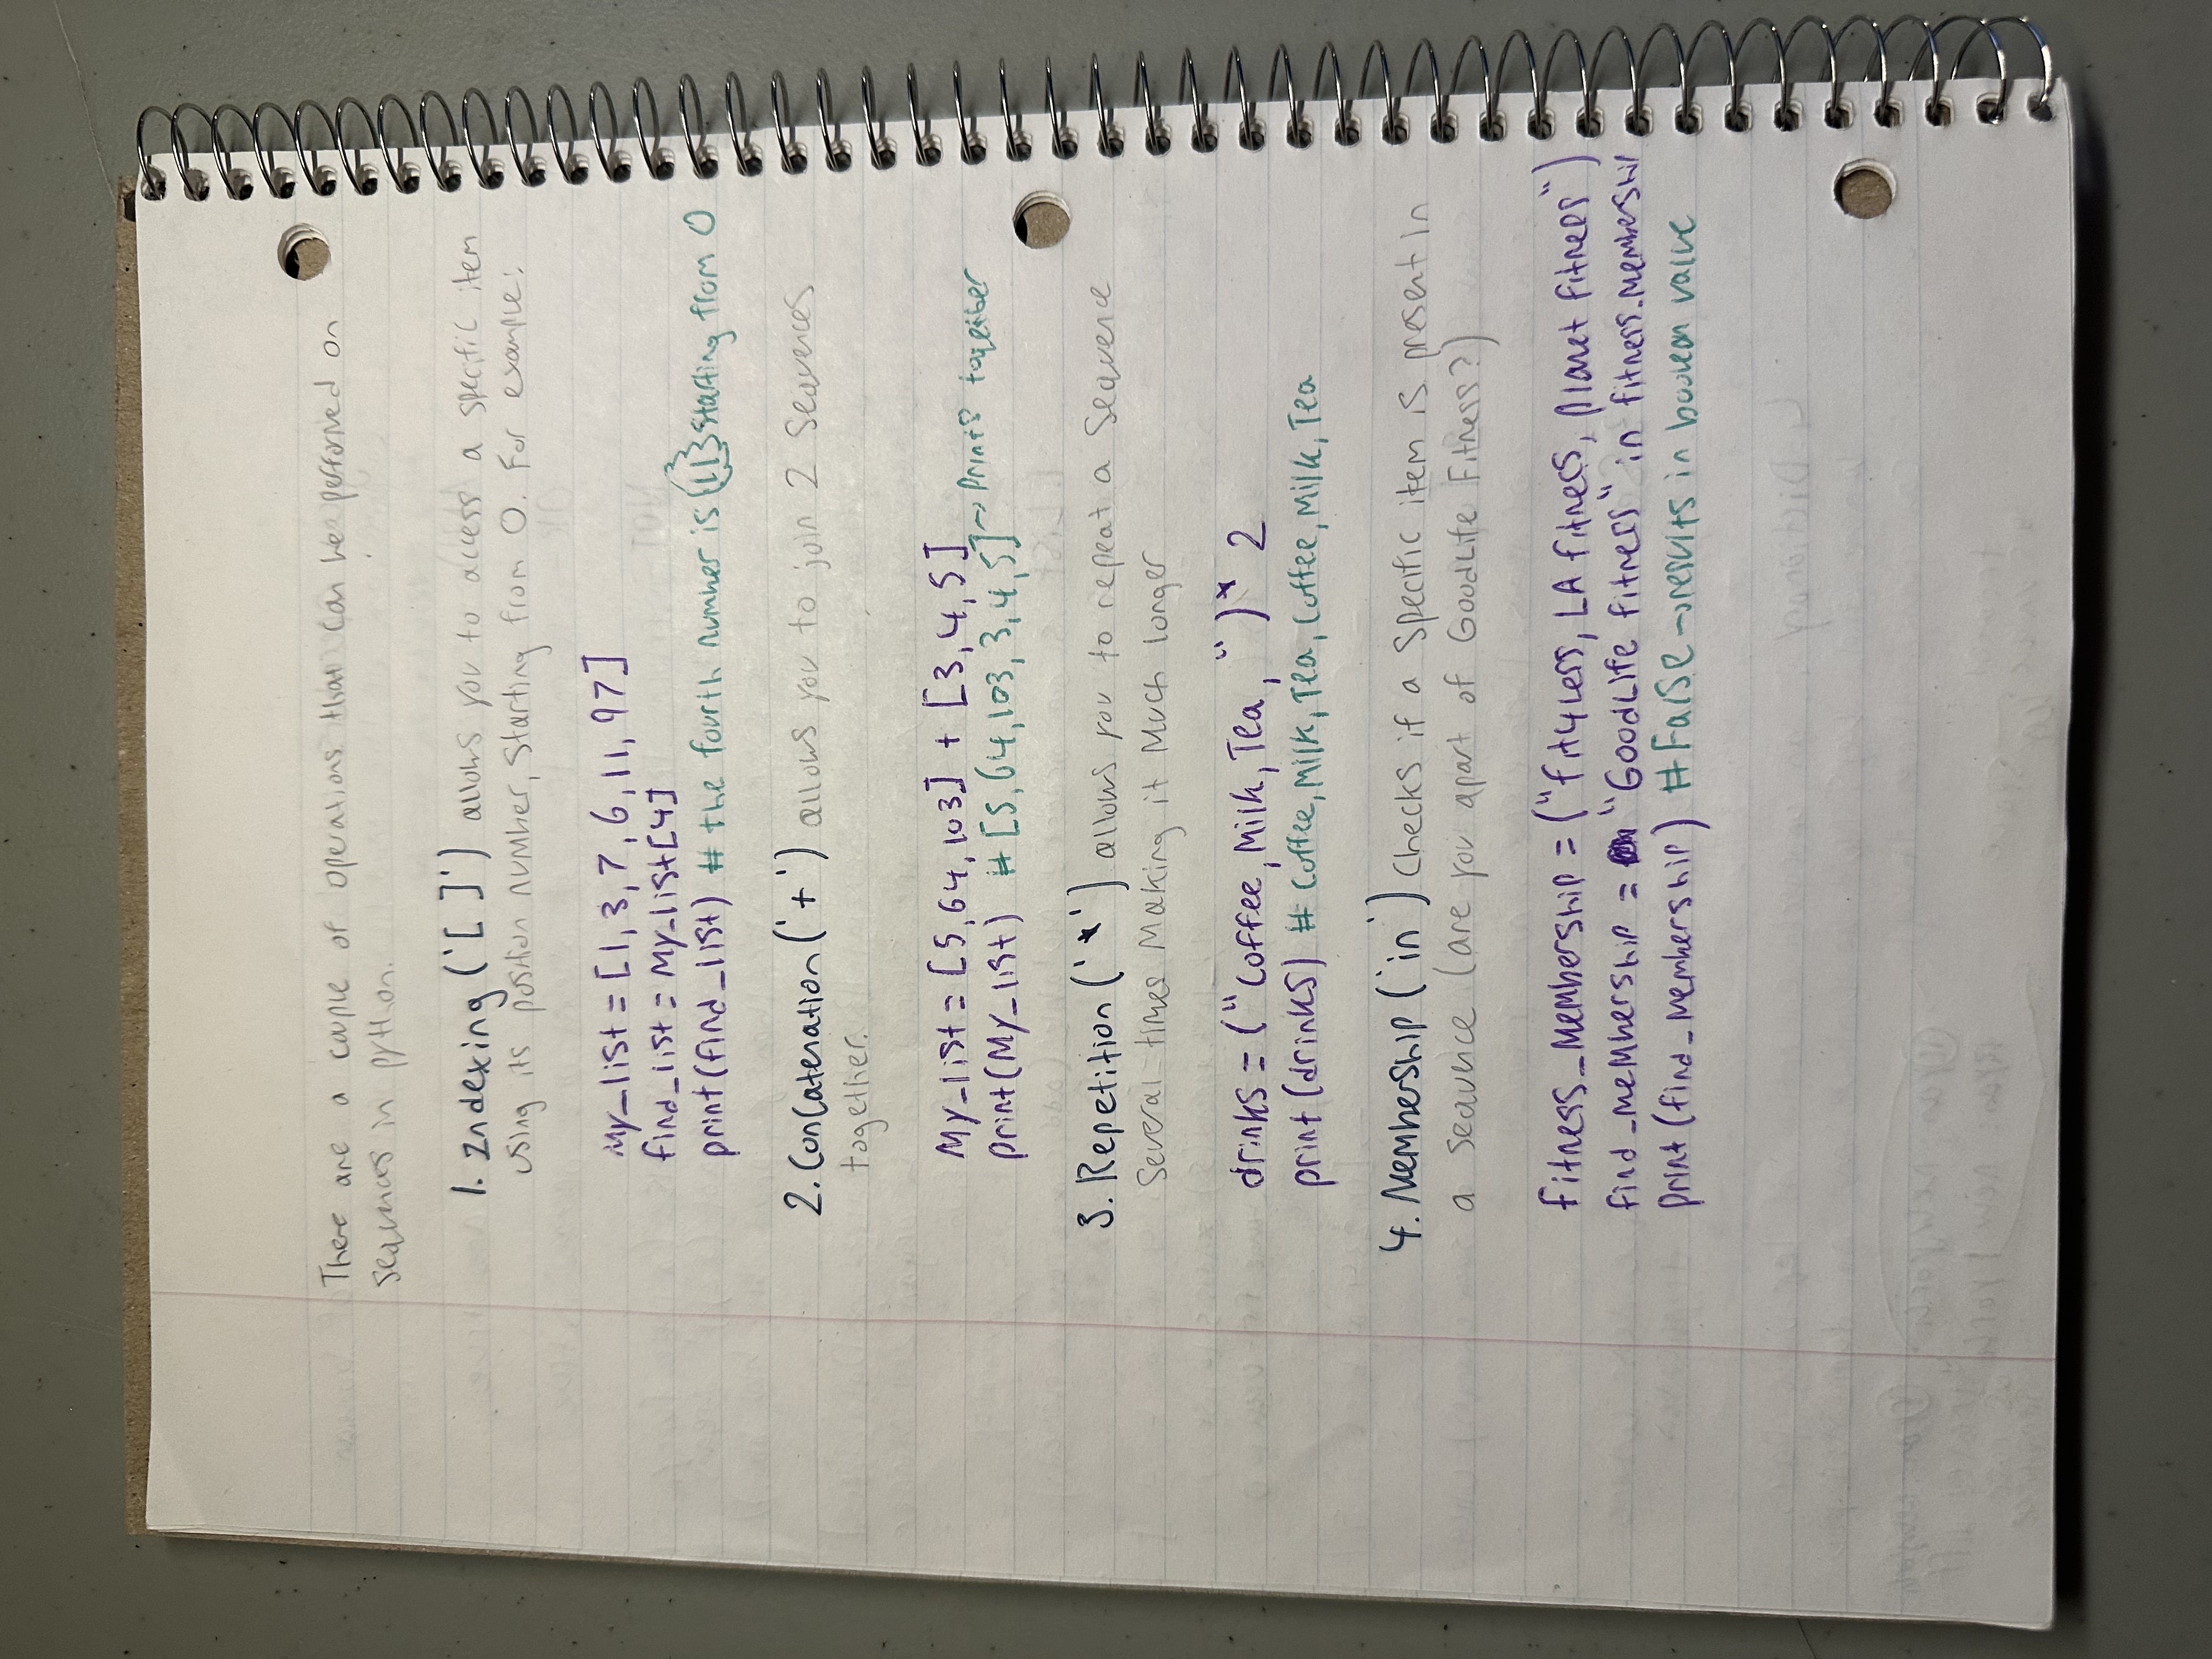 There are a couple of operations that can be performed on
sequences in python.
1. Indexing ('[ ]') allows you to access a specific item
using its position number, starting from 0. For example:
My_list = [1, 3, 7, 6, 11, 97]
find_list = My_list[4]
print(find_list) # the fourth number is {11} starting from 0
2. Concatenation ('+') allows you to join 2 sequences
together.
My_list = [5, 64, 103] + [3, 4, 5]
print(My_list) # [5, 64, 103, 3, 4, 5] → prints together
3. Repetition ('*') allows you to repeat a sequence
several times making it much longer
drinks = ("Coffee, Milk, Tea, ") * 2
print(drinks) # Coffee, Milk, Tea, Coffee, Milk, Tea
4. Membership ('in') checks if a specific item is present in
a sequence (are you apart of GoodLife Fitness?)
fitness_membership = ("fit4less, LA fitness, planet fitness")
find_membership = "GoodLife fitness" in fitness_membership
print(find_membership) # False → results in boolean value